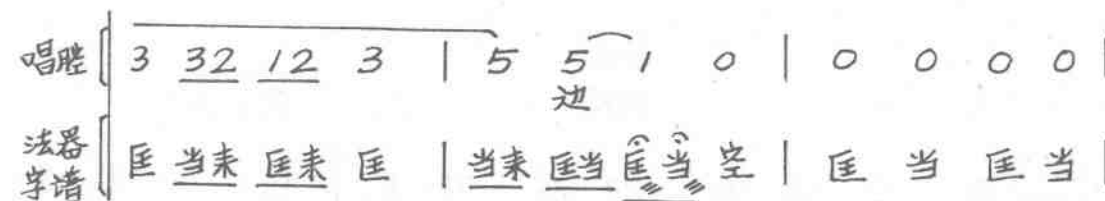 唱腔 3 32 12 3 | 5 5 1 0 | 0 0 0 0 |
边
法器字谱 匡 当来 匡来 匡 | 当来 匡当 匡当 空 | 匡 当 匡 当 |